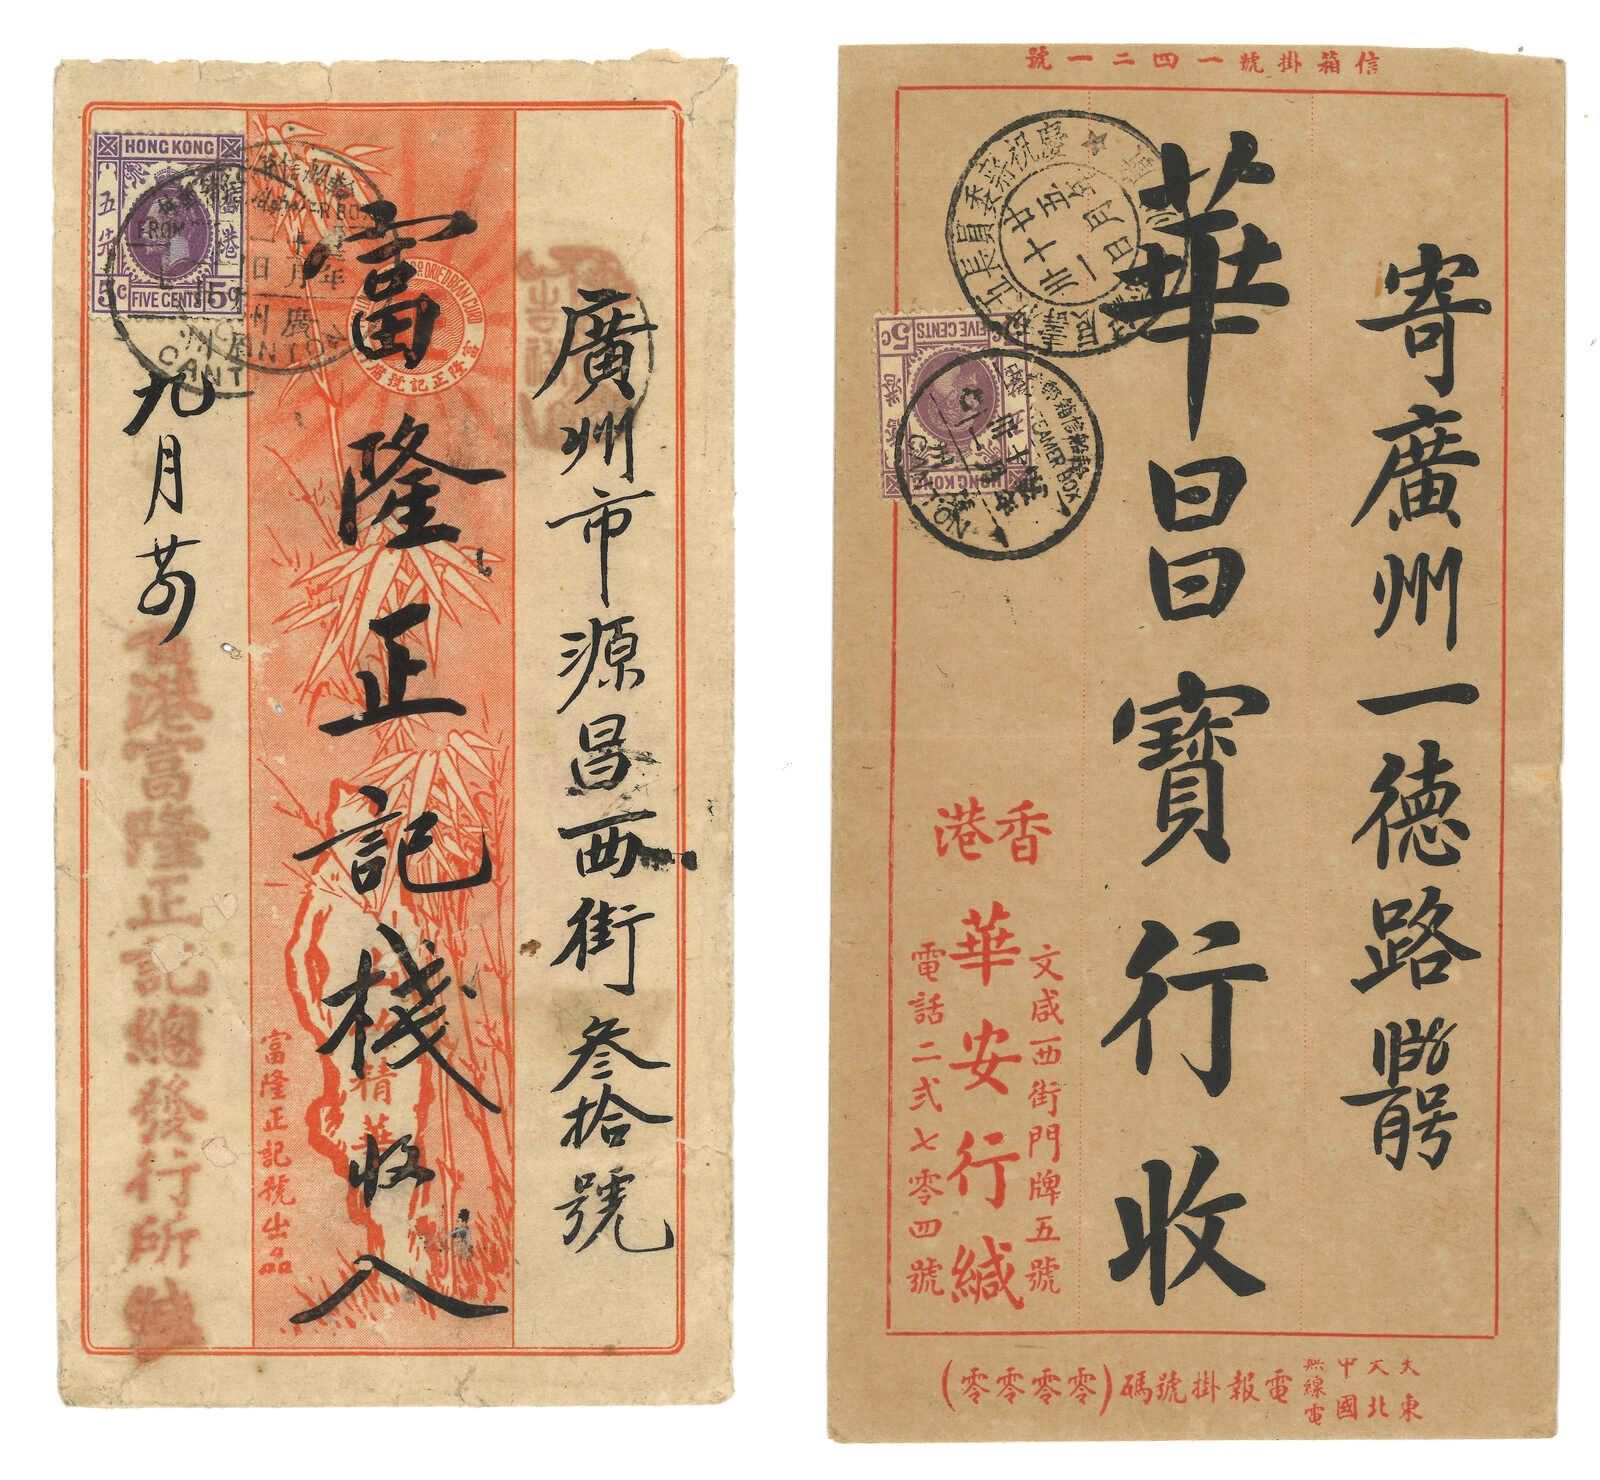 廣州市源昌西街叁拾號
富隆正記棧收入
九月
HONG KONG
香港
五先
5c
FIVE CENTS
CANTON
富隆正記號
精華
富隆正記號出品
港富隆正記總發行所
信箱掛號一四二一號
寄廣州一德路
華昌寶行收
香港
文咸西街門牌五號
華安行緘
電話二弍七零四號
慶祝蔣委員長
廿五年十月卅一日
HONG KONG
5c
FIVE CENTS
STEAMER BOX
大東
大北
中國
無線電
電報掛號碼(零零零零)